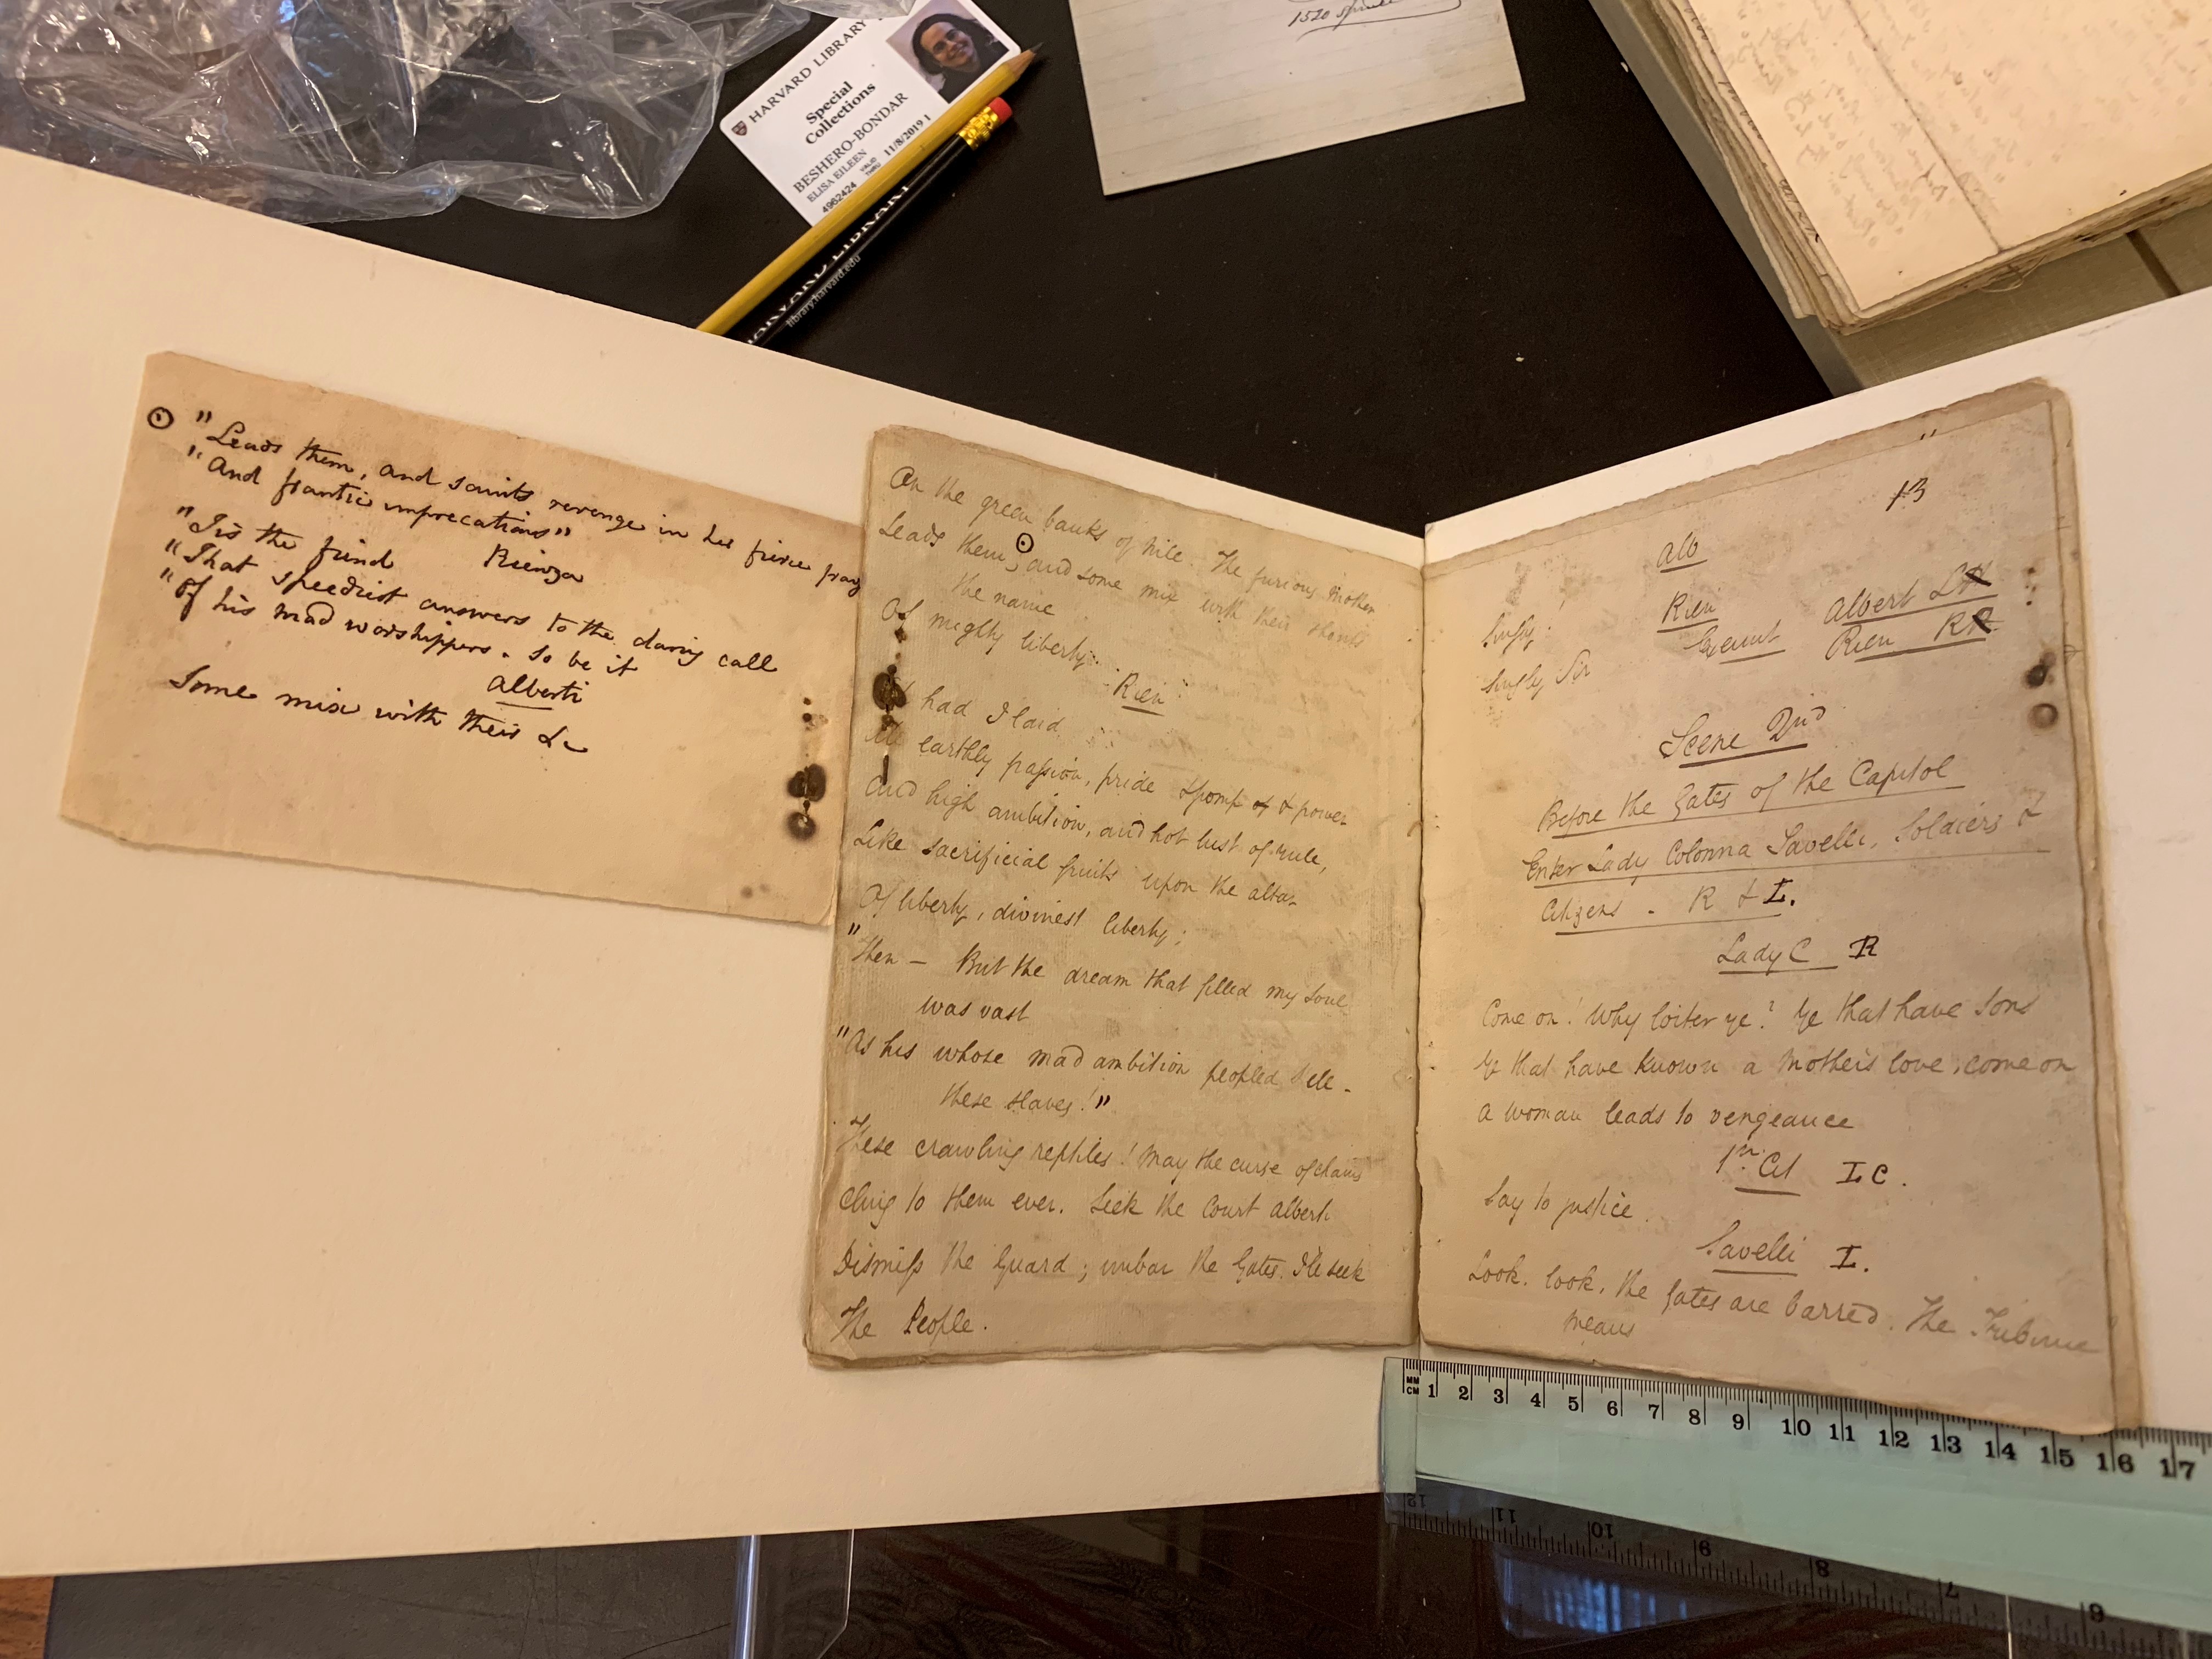 HARVARD LIBRARY
Special
Collections
BESHERO-BONDAR
ELISA EILEEN
4962424 VALID THRU 11/8/2019 1
HARVARD LIBRARY
library.harvard.edu
1520 Spruce
"Leads them, and saints revenge in her fierce pray
"And frantic imprecations"
Rienzi
"Tis the fiend
"That speediest answers to the daring call
"Of his mad worshippers. So be it
Alberti
Some mix with their &c
On the green banks of Nile. The furious Mother
Leads them, and some mix with their shouts
the name
Of mighty liberty.
Rien
had I laid
All earthly passion, pride & pomp of & power
And high ambition, and hot lust of rule,
Like sacrificial fruits upon the altar
Of liberty, divinest liberty;
"Then — But the dream that filled my soul
was vast
"As his whose mad ambition peopled Hell
these slaves!"
These crawling reptiles! May the curse of chains
Cling to them ever. Seek the Court Alberti
Dismiss the Guard; unbar the Gates. I'll seek
The People.
13
Alb
Singly!
Rien
Albert L H
Singly Sir
Exeunt
Rien R H
Scene 2nd
Before the Gates of the Capitol
Enter Lady Colonna Savelli, Soldiers &
Citizens. R & L.
Lady C R
Come on! Why loiter ye? Ye that have Sons
Ye that have known a Mother's love, come on
A woman leads to vengeance
1st Cit L C.
Say to justice.
Savelli L.
Look. look, the Gates are barred. The Tribune
means
MM
CM 1 2 3 4 5 6 7 8 9 10 11 12 13 14 15 16 17
12 11 10 9 8 7 6